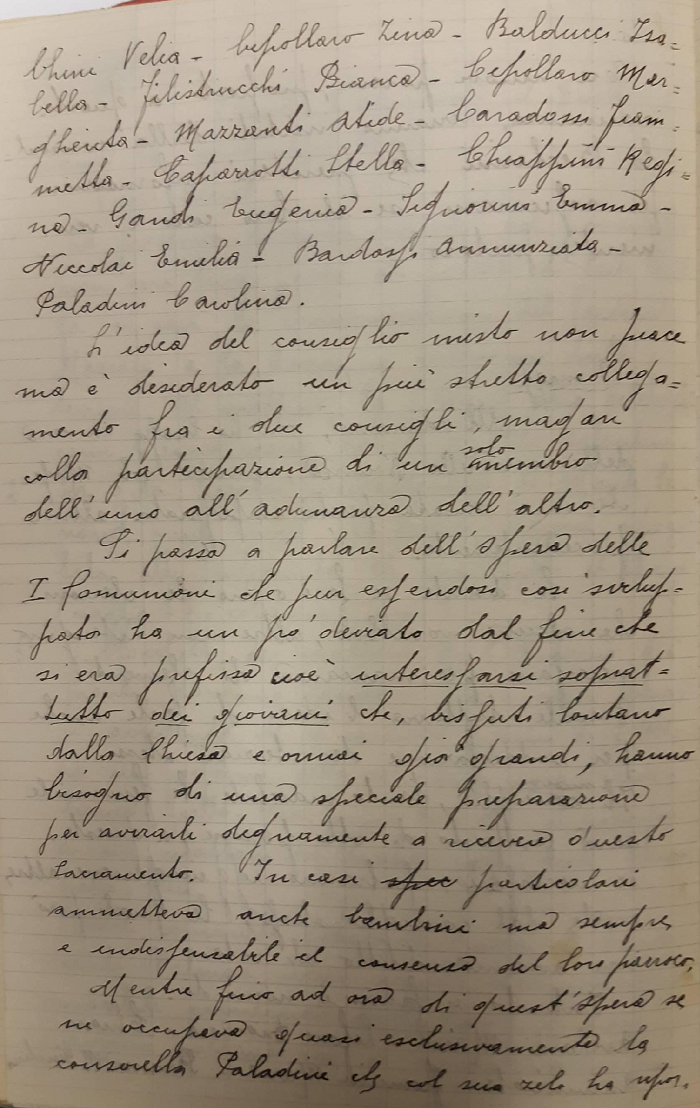 chini Velia - Cepollaro Zina - Balducci Isa=
bella - Filistrucchi Bianca - Cepollaro Mar=
gherita - Mazzanti Atide - Caradossi Fiam=
metta - Caparrotti Stella - Chiappini Regi=
na - Gandi Eugenia - Signorini Emma -
Niccolai Emilia - Bardossi Annunziata -
Paladini Carolina.
L'idea del consiglio misto non piace
ma è desiderato un più stretto collega=
mento fra i due consigli, magari
colla partecipazione di un solo membro
dell'uno all'adunanza dell'altro.
Si passa a parlare dell'Opera delle
I Comunioni che pur essendosi così svilup=
pata ha un po' deviato dal fine che
si era prefissa cioè interessarsi soprat=
tutto dei giovani che, vissuti lontano
dalla Chiesa e ormai già grandi, hanno
bisogno di una speciale preparazione
per avviarli degnamente a ricevere questo
Sacramento. In casi spec particolari
ammetteva anche bambini ma sempre
e indispensabile il consenso del loro parroco.
Mentre fino ad ora di quest'Opera se
ne occupava quasi esclusivamente la
consorella Paladini che col suo zelo ha